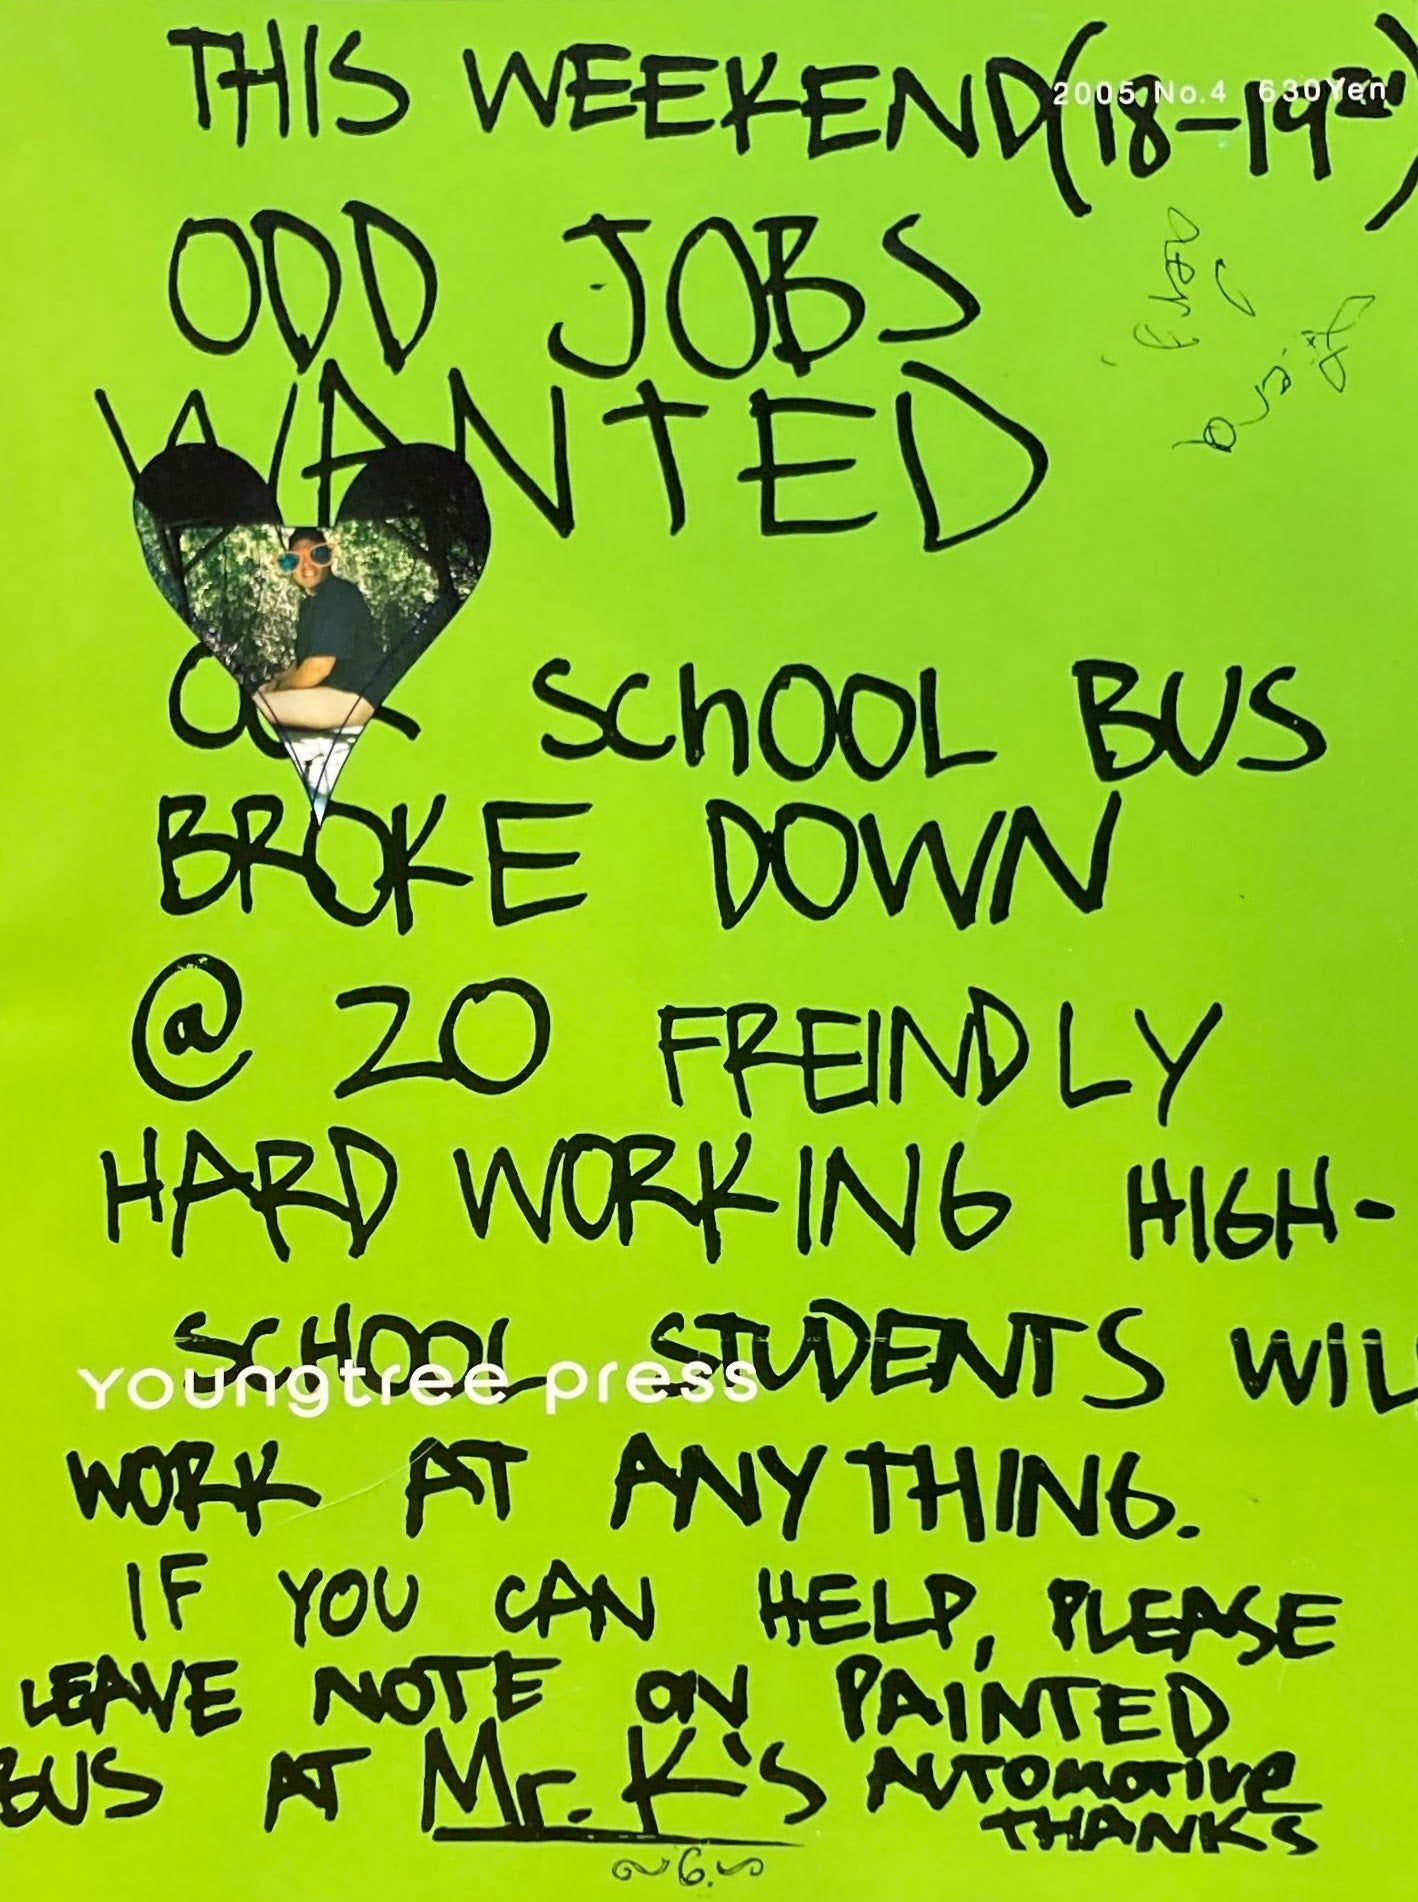 2005 No.4 630Yen
THIS WEEKEND (18-19TH)
ODD JOBS
WANTED
OUR SChOOL BUS
BROKE DOWN
@ 20 FREINDLY
HARD WORKING HIGH-
SCHOOL STUDENTS WiLL
Youngtree press
WORK AT ANYTHING.
IF YOU CAN HELP, PLEASE
LEAVE NOTE ON PAiNTED
BUS AT Mr. K's AUTOMOTIVe
THANKS
6.